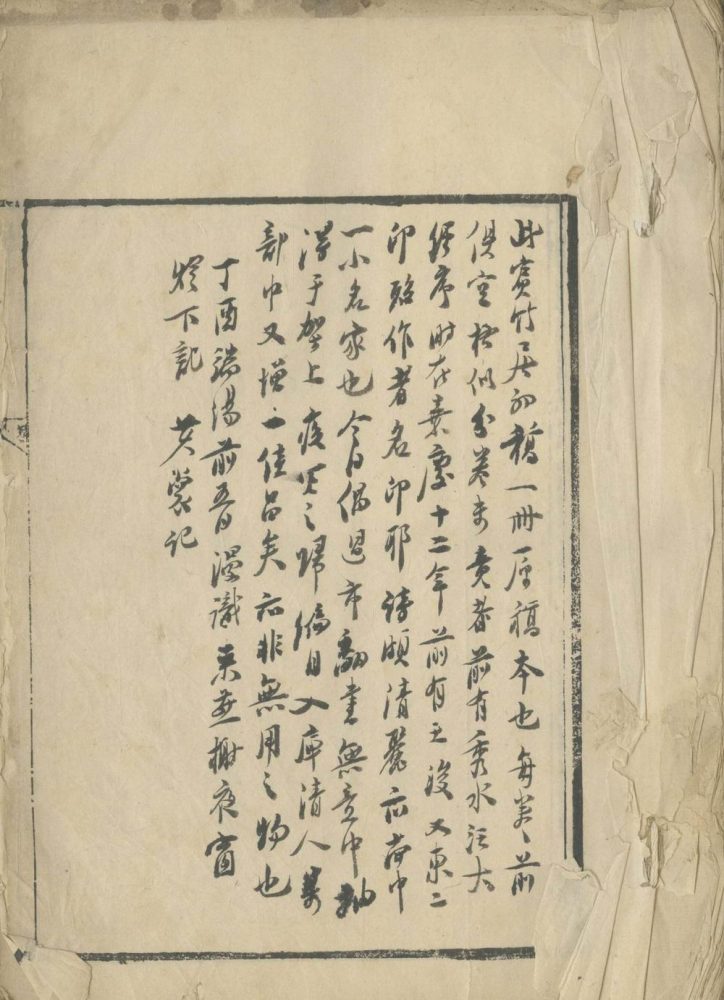 此賓竹居初稿一冊原稿本也每卷之前
俱空格似分卷未竟者前有秀水汪大
經序時在嘉慶十二年前有王浚又東二
印殆作者名印耶詩頗清麗亦當中
一小名家也今日偶過市翻書無意中抽
得于架上疾買之歸編目入庫清人集
部中又增一佳品矣亦非無用之物也
丁酉端陽前五日漫識 夜窗
燈下記 黃裳记